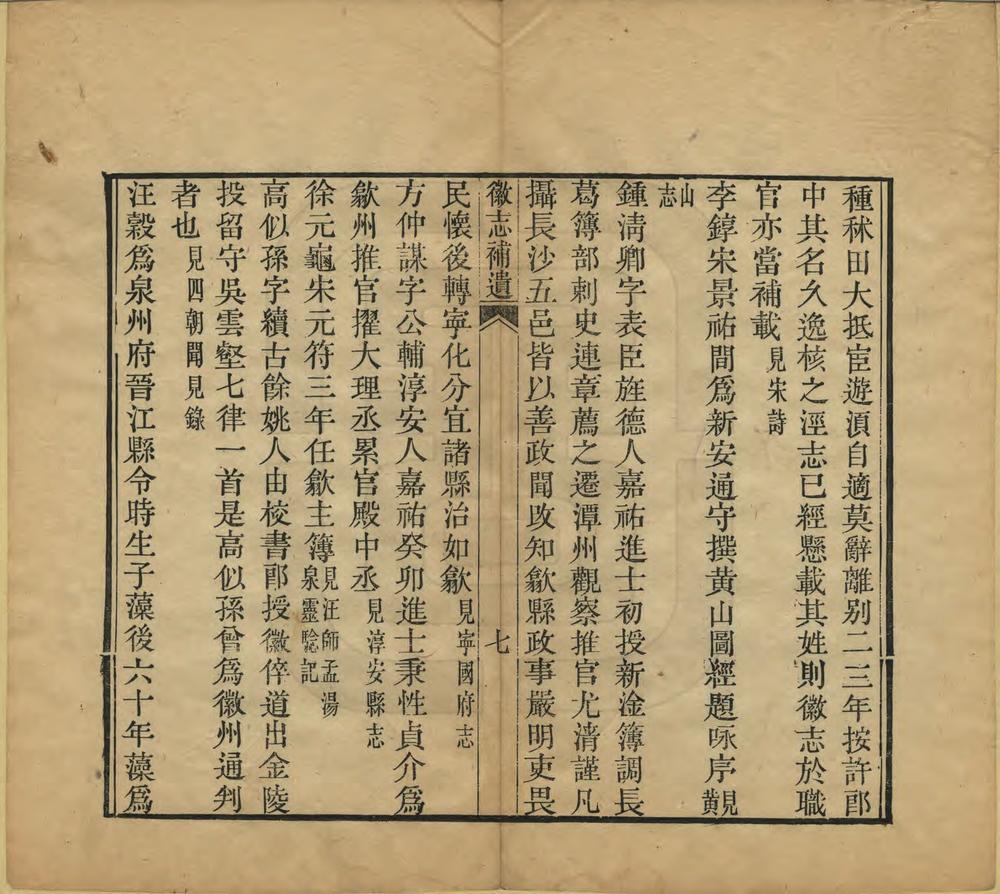 種秫田大抵宦遊湏自適莫辭離别二三年按許郎
中其名久逸核之涇志已經懸載其姓則徽志於職
官亦當補載見宋詩
李錞宋景祐間爲新安通守撰黄山圖經題咏序見黄
山志
鍾淸卿字表臣旌德人嘉祐進士初授新淦簿調長
葛簿部刺史連章薦之遷潭州觀察推官尤淸謹凡
攝長沙五邑皆以善政聞改知歙縣政事嚴明吏畏
徽志補遺 七
民懷後轉寕化分宜諸縣治如歙見寧國府志
方仲謀字公輔淳安人嘉祐癸卯進士秉性貞介爲
歙州推官擢大理丞累官殿中丞見淳安縣志
徐元龜宋元符三年任歙主簿見汪師孟湯泉靈驗記
高似孫字續古餘姚人由校書郎授徽倅道出金陵
投留守吳雲壑七律一首是高似孫曾爲徽州通判
者也見四朝聞見錄
汪穀爲泉州府晉江縣令時生子藻後六十年藻爲